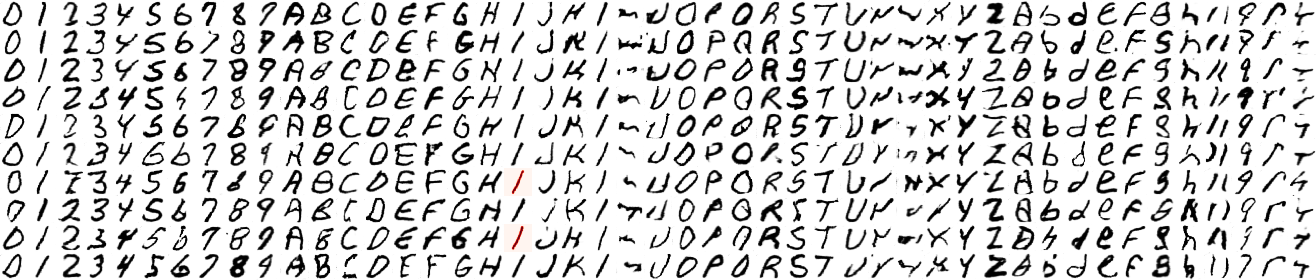 0 1 2 3 4 5 6 7 8 9 A B C D E F G H I J K l N O P Q R S T U V X Y Z A b d e F g h n q r t
0 1 2 3 4 5 6 7 8 9 A B C D E F G H I J K l N O P Q R S T U V X Y Z A b d e F g h n q r t
0 1 2 3 4 5 6 7 8 9 A B C D E F G H I J K l N O P Q R S T U V X Y Z A b d e F g h n q r t
0 1 2 3 4 5 6 7 8 9 A B C D E F G H I J K l N O P Q R S T U V X Y Z A b d e F g h n q r t
0 1 2 3 4 5 6 7 8 9 A B C D E F G H I J K l N O P Q R S T U V X Y Z A b d e F g h n q r t
0 1 2 3 4 5 6 7 8 9 A B C D E F G H I J K l N O P Q R S T U V X Y Z A b d e F g h n q r t
0 1 2 3 4 5 6 7 8 9 A B C D E F G H I J K l N O P Q R S T U V X Y Z A b d e F g h n q r t
0 1 2 3 4 5 6 7 8 9 A B C D E F G H I J K l N O P Q R S T U V X Y Z A b d e F g h n q r t
0 1 2 3 4 5 6 7 8 9 A B C D E F G H I J K l N O P Q R S T U V X Y Z A b d e F g h n q r t
0 1 2 3 4 5 6 7 8 9 A B C D E F G H I J K l N O P Q R S T U V X Y Z A b d e F g h n q r t